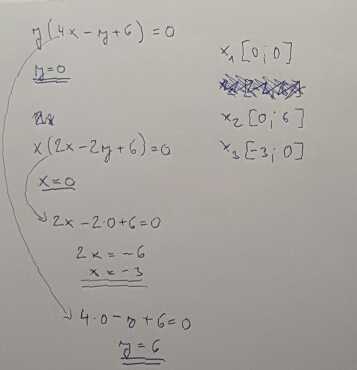 y(4x-y+6)=0
y=0
x(2x-2y+6)=0
x=0
2x-2·0+6=0
2x=-6
x=-3
4·0-y+6=0
y=6
x₁[0;0]
x₂[0;6]
x₃[-3;0]